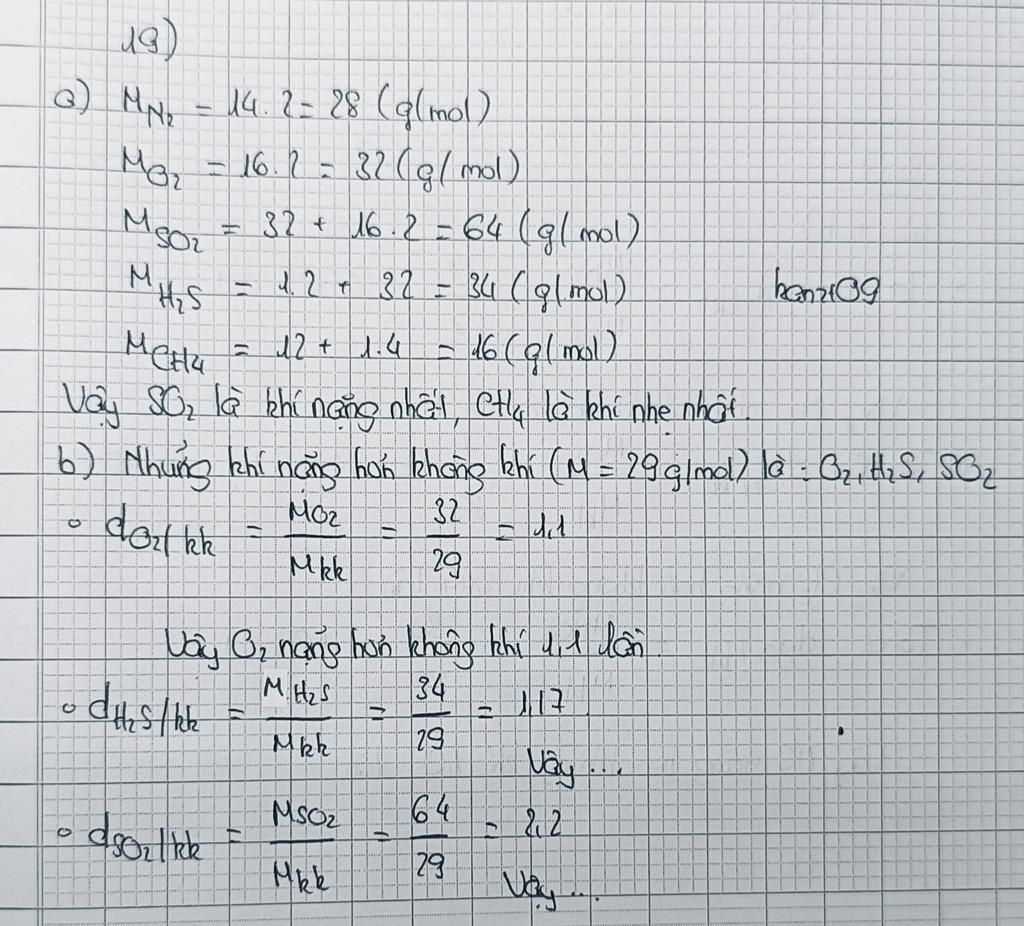 19)
a) M_N₂ = 14.2 = 28 (g/mol)
M_O₂ = 16.2 = 32 (g/mol)
M_SO₂ = 32 + 16.2 = 64 (g/mol)
M_H₂S = 1.2 + 32 = 34 (g/mol)
M_CH₄ = 12 + 1.4 = 16 (g/mol)
Vậy SO₂ là khí nặng nhất, CH₄ là khí nhẹ nhất.
b) Những khí nặng hơn không khí (M = 29 g/mol) là : O₂, H₂S, SO₂
∘ d_O₂/kk = M_O₂ / M_kk = 32 / 29 = 1,1
Vậy O₂ nặng hơn không khí 1,1 lần.
∘ d_H₂S/kk = M_H₂S / M_kk = 34 / 29 = 1,17
Vậy ...
∘ d_SO₂/kk = M_SO₂ / M_kk = 64 / 29 = 2,2
Vậy ...